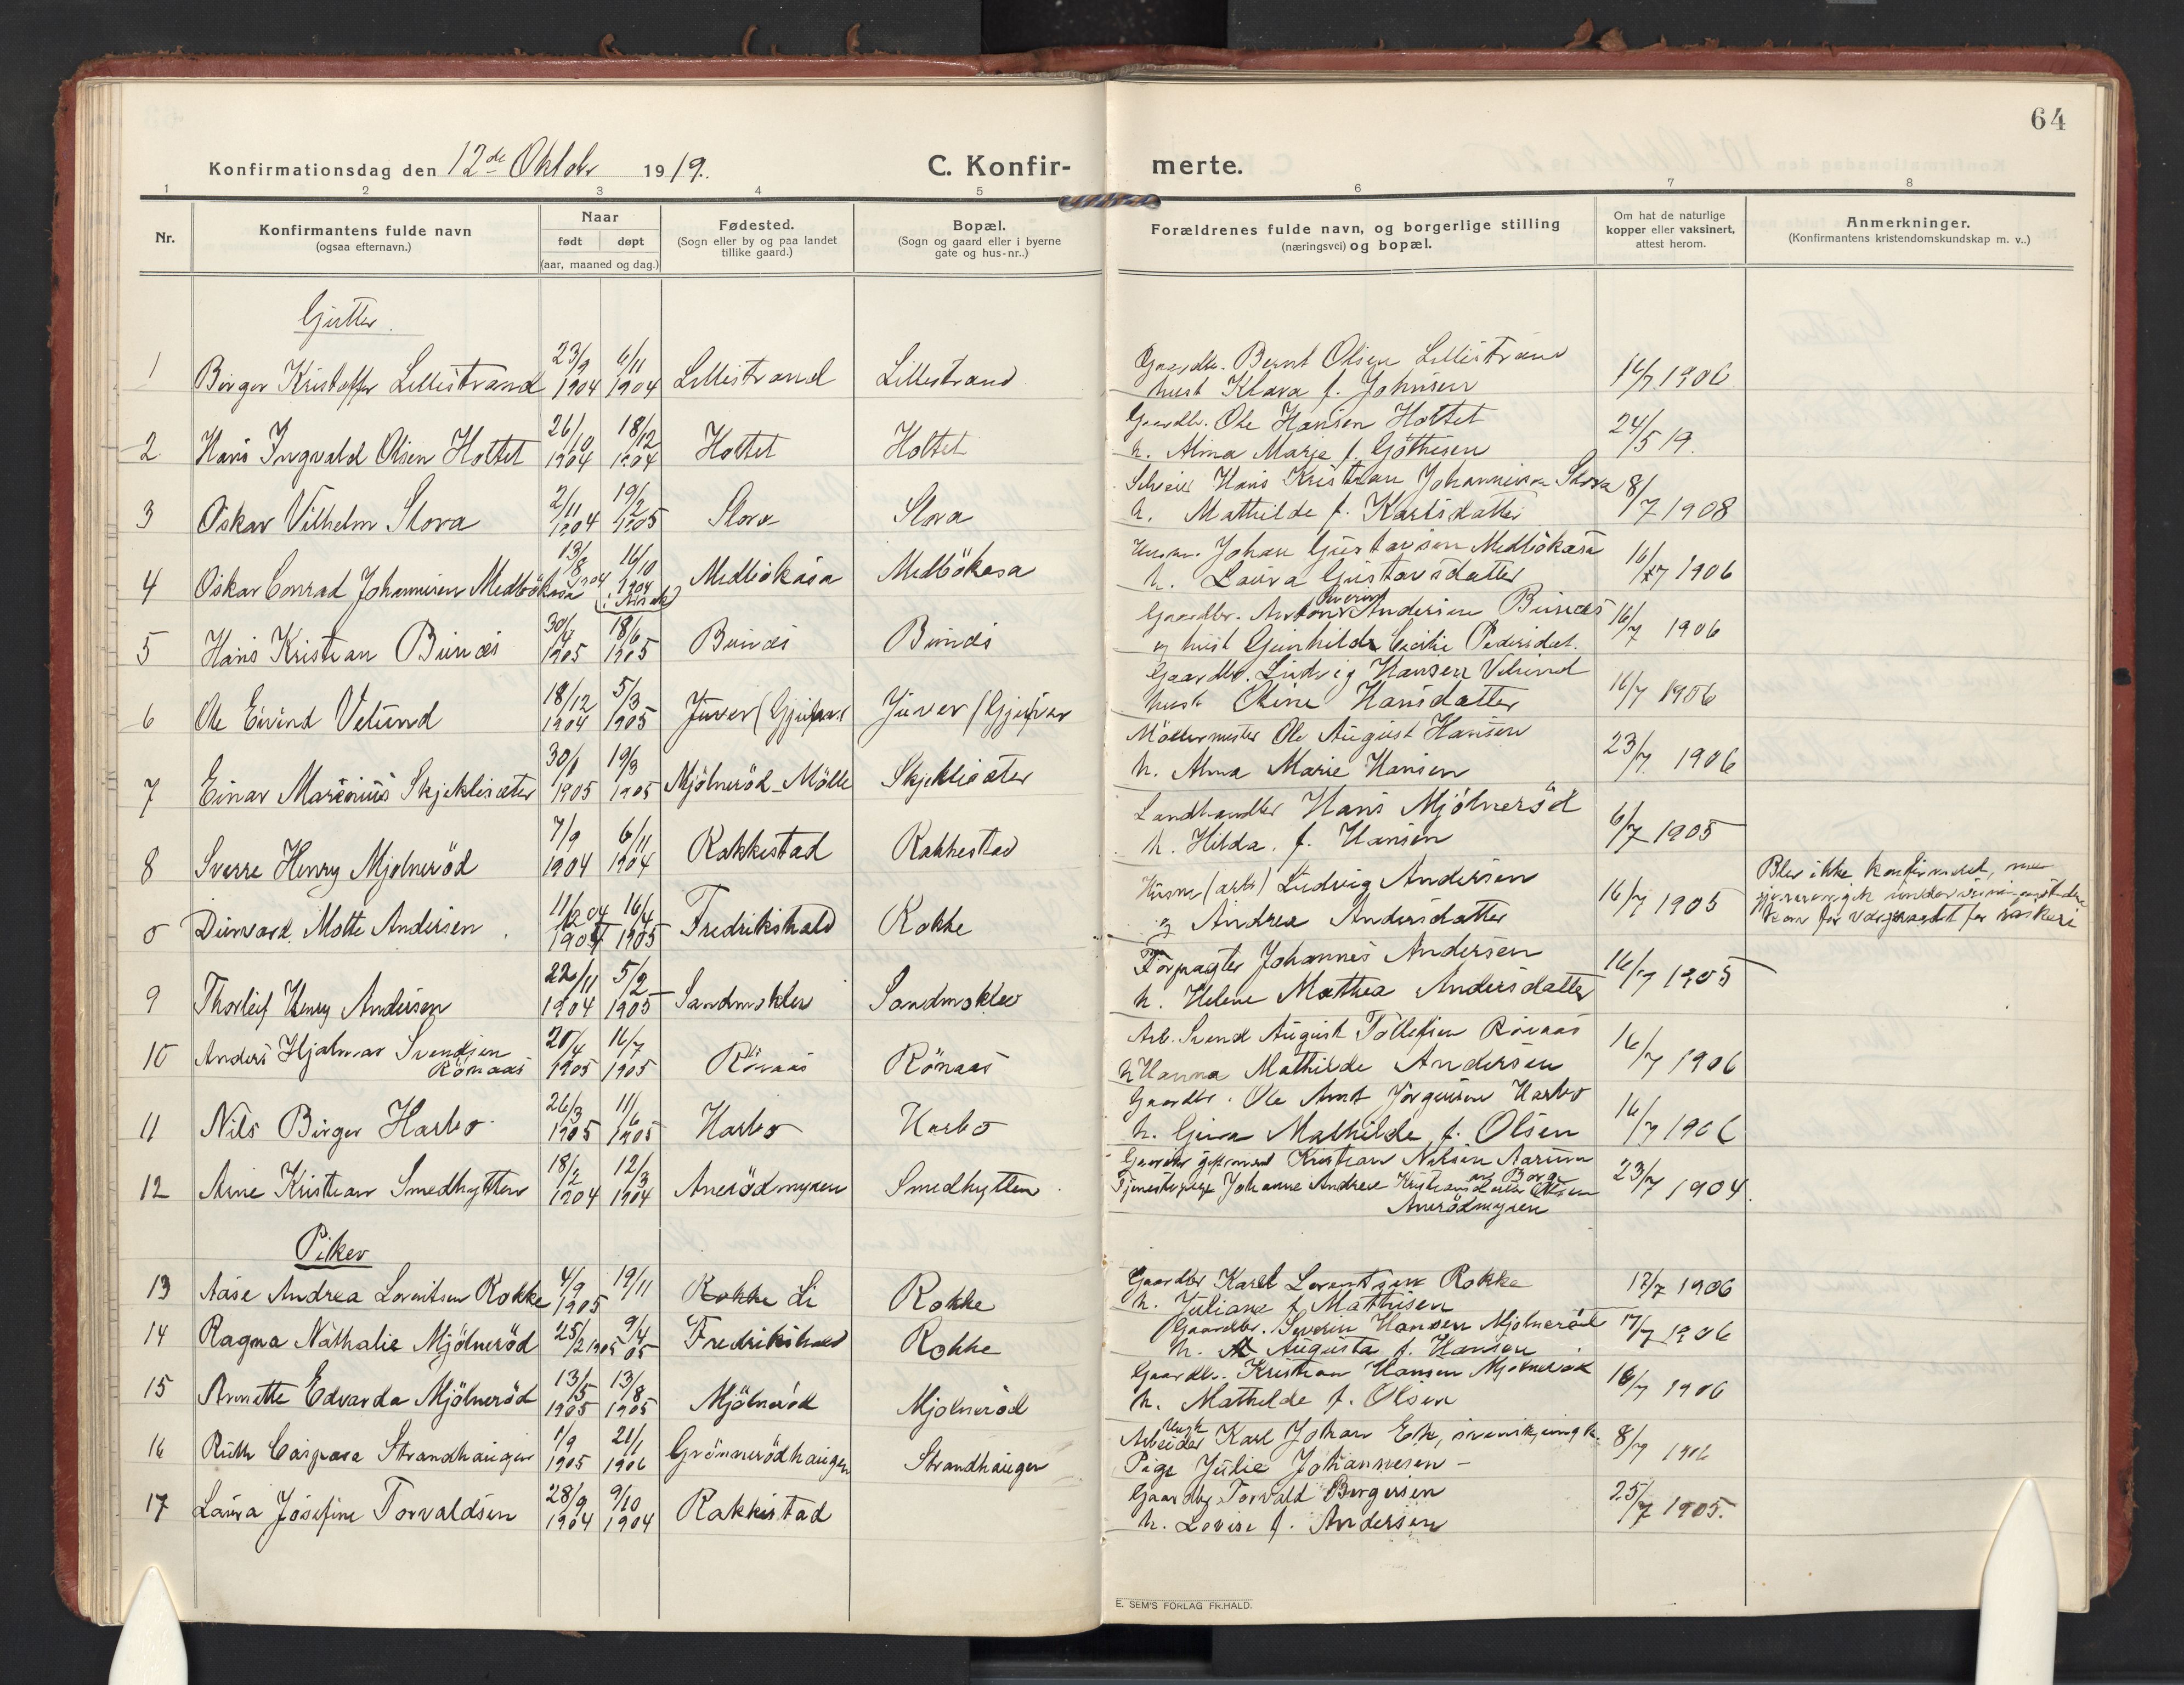 64
Konfirmationsdag den 12de Oktobr 1919.
C. Konfir- merte.
1 2 3 4 5 6 7 8
Nr.
Konfirmantens fulde navn
(ogsaa efternavn.)
Naar
født døpt
(aar, maaned og dag.)
Fødested.
(Sogn eller by og paa landet
tillike gaard.)
Bopæl.
(Sogn og gaard eller i byerne
gate og hus-nr..)
Forældrenes fulde navn, og borgerlige stilling
(næringsvei) og bopæl.
Om hat de naturlige
kopper eller vaksinert,
attest herom.
Anmerkninger.
(Konfirmantens kristendomskundskap m. v..)
Gutter.
Gaardbr. Bernt Olsen Lillestrand
1 Birger Kristoffer Lillestrand 23/9 1904 6/11 1904 Lillestrand Lillestrand hust Klara f. Johnsen 1906
Gaardbr. Ole Hansen Holtet
2. Hans Ingvald Olsen Holtet 26/10 1904 18/12 1904 Holtet Holtet h. Alma Marie f. Göthesen 24/5 19.
Hans Kristian Johannesen Slora
3 Oskar Vilhelm Slora 2/11 1904 19/2 1905 Slora Slora h. Mathilde f. Karlsdatter 8/7 1908
Johan Gustavsen Medbökasa
4 Oskar Conrad Johannesen Medbökasa 13/8 1904 16/10 1904 Medbökasa Medbökasa h. Laura Gustavsdatter 16/7 1906
Gaardbr. Anton Severin Andersen Bunæs
5 Hans Kristian Bunæs 30/4 1905 18/6 1905 Bunæs Bunæs og hust Gunhilde Cecilie Pedersdat. 16/7 1906
Gaardbr. Ludvig Hansen Velund
6 Ole Eivind Velund 18/12 1904 5/3 1905 Juver (Gjulver Juver (Gjulver hust Oline Hansdatter 16/7 1906
Möllermester Ole August Hansen
7 Einar Marenius Skjeklesæter 30/1 1905 19/3 1905 Mjölneröd Mölle Skjeklesæter h. Alma Marie Hansen 23/7 1906
Landhandler Hans Mjölneröd
8 Sverre Henry Mjölneröd 7/9 1904 6/11 1904 Rakkestad Rakkestad h. Hilda f. Hansen 6/7 1905
Husm (arb) Ludvig Andersen
0 Motte Andersen 1904 16/4 1905 Fredrikshald Rokke og Andrea Andersdatter 16/7 1905
Blev ikke konfirmeret, men
Forpagter Johannes Andersen
9 Thorleif Henry Andersen 22/11 1904 5/2 1905 Sandmoklev Sandmoklev h. Helene Mathea Andersdatter 16/7 1905
Arb. Svend August Tollefsen Rönaas
10 Anders Hjalmar Svendsen
Rönaas 20/4 1905 16/7 1905 Rönaas Rönaas h Hanna Mathilde Andersen 16/7 1906
Gaardbr. Ole Arnt Jörgensen Harbo
11 Nils Birger Harbo 26/3 1905 11/6 1905 Harbo Harbo h. Gina Mathilde f. Olsen 16/7 1906
Kristian Nilsen
12 Arne Kristian Smedhytten 18/2 1904 12/3 1904 Anerödmyren Smedhytten Tjenestepige Johanne Andrea Kristiansdatter Olsen 23/7 1904.
Anerödmyren
Piker
Gaardbr Karel Lorentsen Rokke
13 Aase Andrea Lorentsen Rokke 4/9 1905 19/11 Rokke Li Rokke h. Juliane f. Mathisen 17/7 1906
Gaardbr. Severin Hansen Mjölneröd
14 Ragna Nathalie Mjölneröd 25/2 1905 9/4 05 Fredrikshald Rokke h. Augusta f. Hansen 17/7 1906
Gaardbr. Kristian Hansen Mjölneröd
15 Annette Edvarda Mjölneröd 13/5 1905 13/8 1905 Mjölneröd Mjölneröd h. Mathilde f. Olsen 16/7 1906
Arbeider Karl Johan Ek, svensk, ungk.
16 Ruth Caspara Strandhaugen 1/9 1905 21/1 1906 Grönneródhaugen Strandhaugen Pige Julie Johannesen 8/7 1906
Gaardbr. Torvald Borgersen
17 Laura Josefine Torvaldsen 28/9 1904 9/10 1904 Rakkestad h. Lovise f. Andersen 25/7 1905.
E. SEM'S FORLAG FR.HALD.